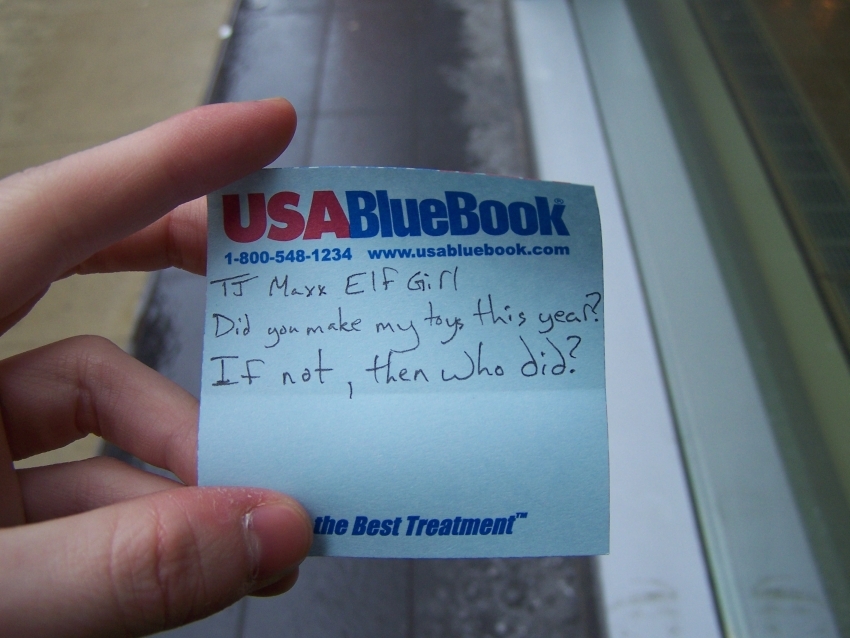 USABlueBook®
1-800-548-1234 www.usabluebook.com
TJ Maxx Elf Girl
Did you make my toys this year?
If not, then who did?
the Best Treatment™